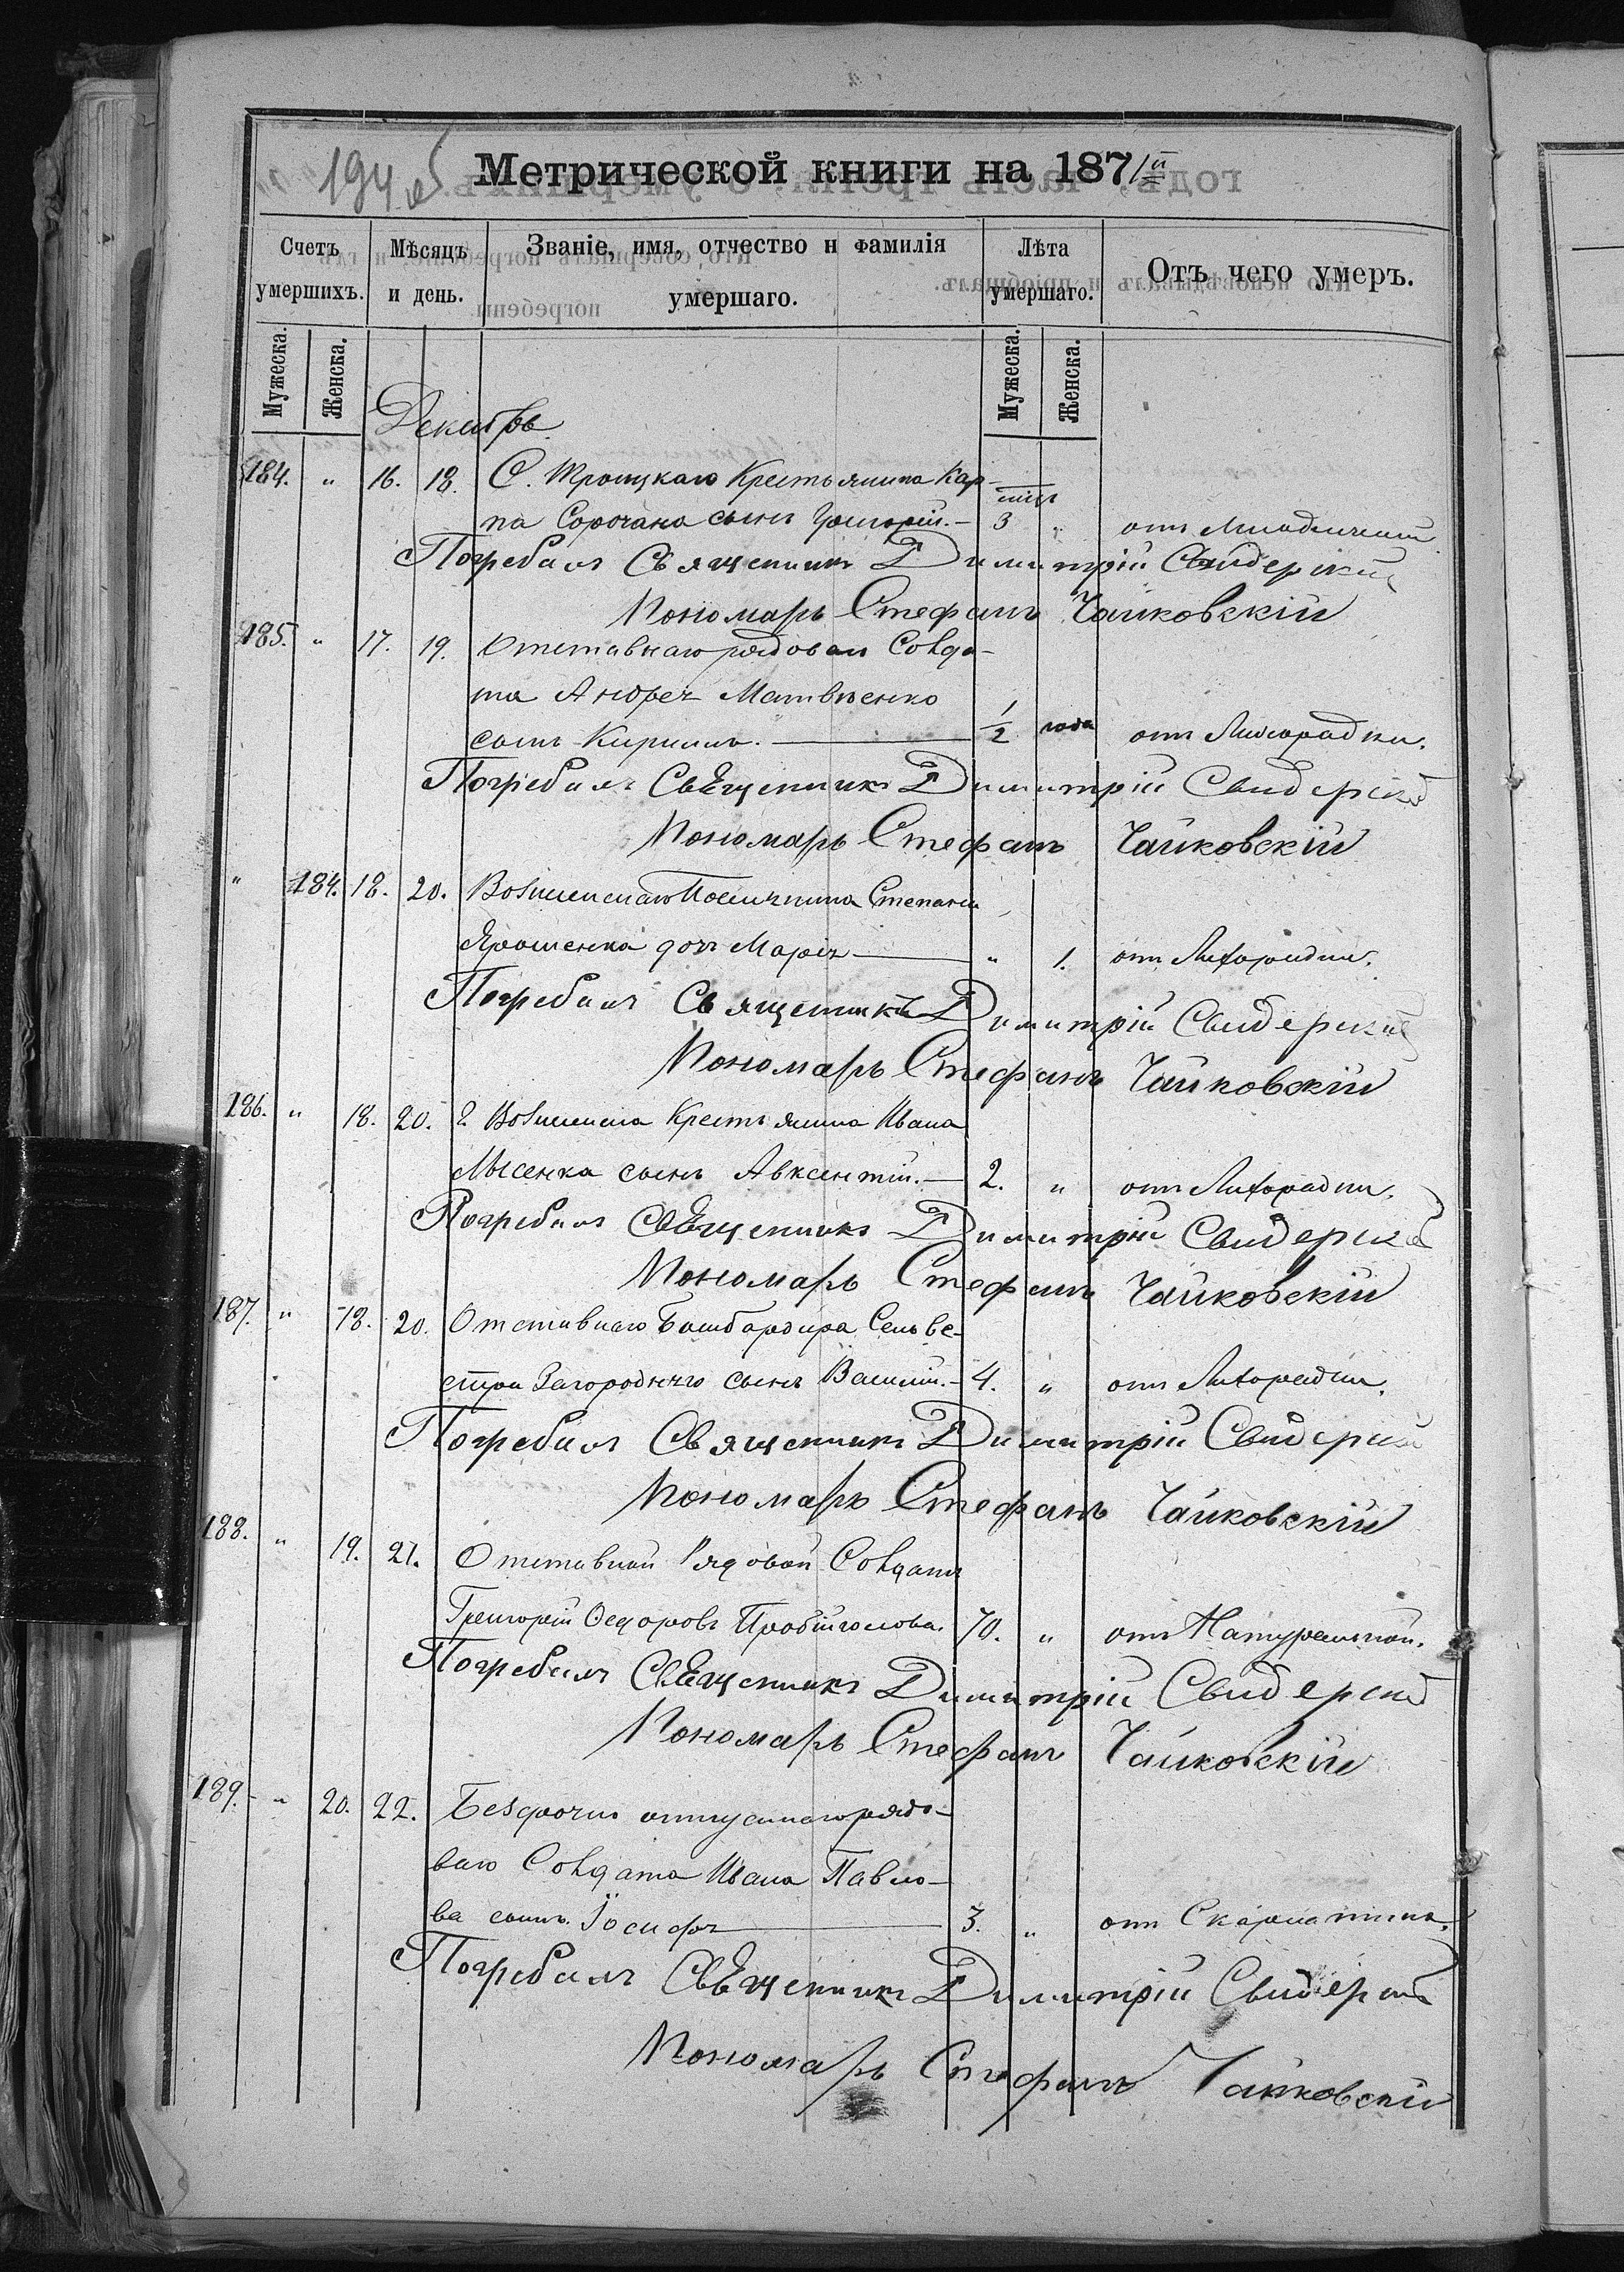 194 об
Метрической книги на 1871й
Счетъ умершихъ.
Мѣсяцъ и день.
Званіе, имя, отчество и фамилія умершаго.
Лѣта умершаго.
Отъ чего умеръ.
Мужеска. Женска. Мужеска. Женска.
Декабрь
184. " 16. 18. С. Троицкаго Крестьянина Кар-
па Сорочана сынъ Григорій. – 3 мца " отъ Младенческой
Погребалъ Священникъ Димитрій Свидерскій
Пономарь Стефанъ Чайковскій
185. " 17. 19. Отставнаго рядоваго Солда-
та Андрея Матвѣенко
сынъ Кирилъ. – 1/2 года отъ Лихорадки.
Погребалъ Священникъ Димитрій Свидерскій
Пономарь Стефанъ Чайковскій
" 184. 18. 20. Степана
Ярошенка дочь Марія – " 1. отъ Лихорадки.
Погребалъ Священникъ Димитрій Свидерскій
Пономарь Стефанъ Чайковскій
186. " 18. 20. Г. Вознесенска Крестьянина Ивана
Лысенка сынъ Авксентій. – 2. " отъ Лихорадки.
Погребалъ Священникъ Димитрій Свидерскій
Пономарь Стефанъ Чайковскій
187. " 18. 20. Отставнаго Бомбардира Сельве-
стра Загороднего сынъ Василій. – 4. " отъ Лихорадки.
Погребалъ Священникъ Димитрій Свидерскій
Пономарь Стефанъ Чайковскій
188. " 19. 21. Отставной Рядовой Солдатъ
Григорій Ѳедоровъ Пробійголова. 70. " отъ Натуральной.
Погребалъ Священникъ Димитрій Свидерскій
Пономарь Стефанъ Чайковскій
189. – " 20. 22. рядо-
ваго Солдата Ивана Павло-
ва сынъ Іосифъ – 3. " отъ Скарлатины.
Погребалъ Священникъ Димитрій Свидерскій
Пономарь Стефанъ Чайковскій